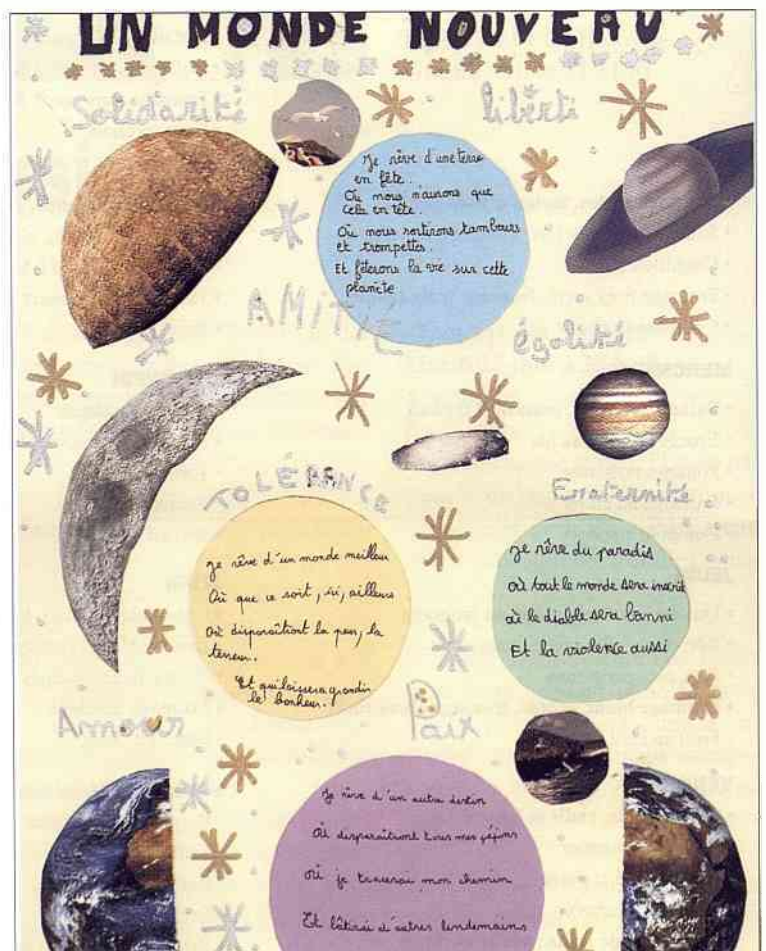 UN MONDE NOUVEAU
Solidarité
liberté
Je rêve d'une terre
en fête.
Où nous n'aurons que
cela en tête.
Où nous sortirons tambours
et trompettes.
Et fêterons la vie sur cette
planète
AMITIÉ
égalité
TOLÉRANCE
Fraternité
Je rêve d'un monde meilleur
Où que ce soit, ici, ailleurs
Où disparaîtront la peur, la
terreur.
Et qui laissera grandir
le bonheur.
Je rêve du paradis
où tout le monde sera inscrit
où le diable sera banni
Et la violence aussi
Amour
Paix
Je rêve d'un autre destin
Où disparaîtront tous mes
où je tracerai mon chemin
Et bâtirai d'autres lendemains